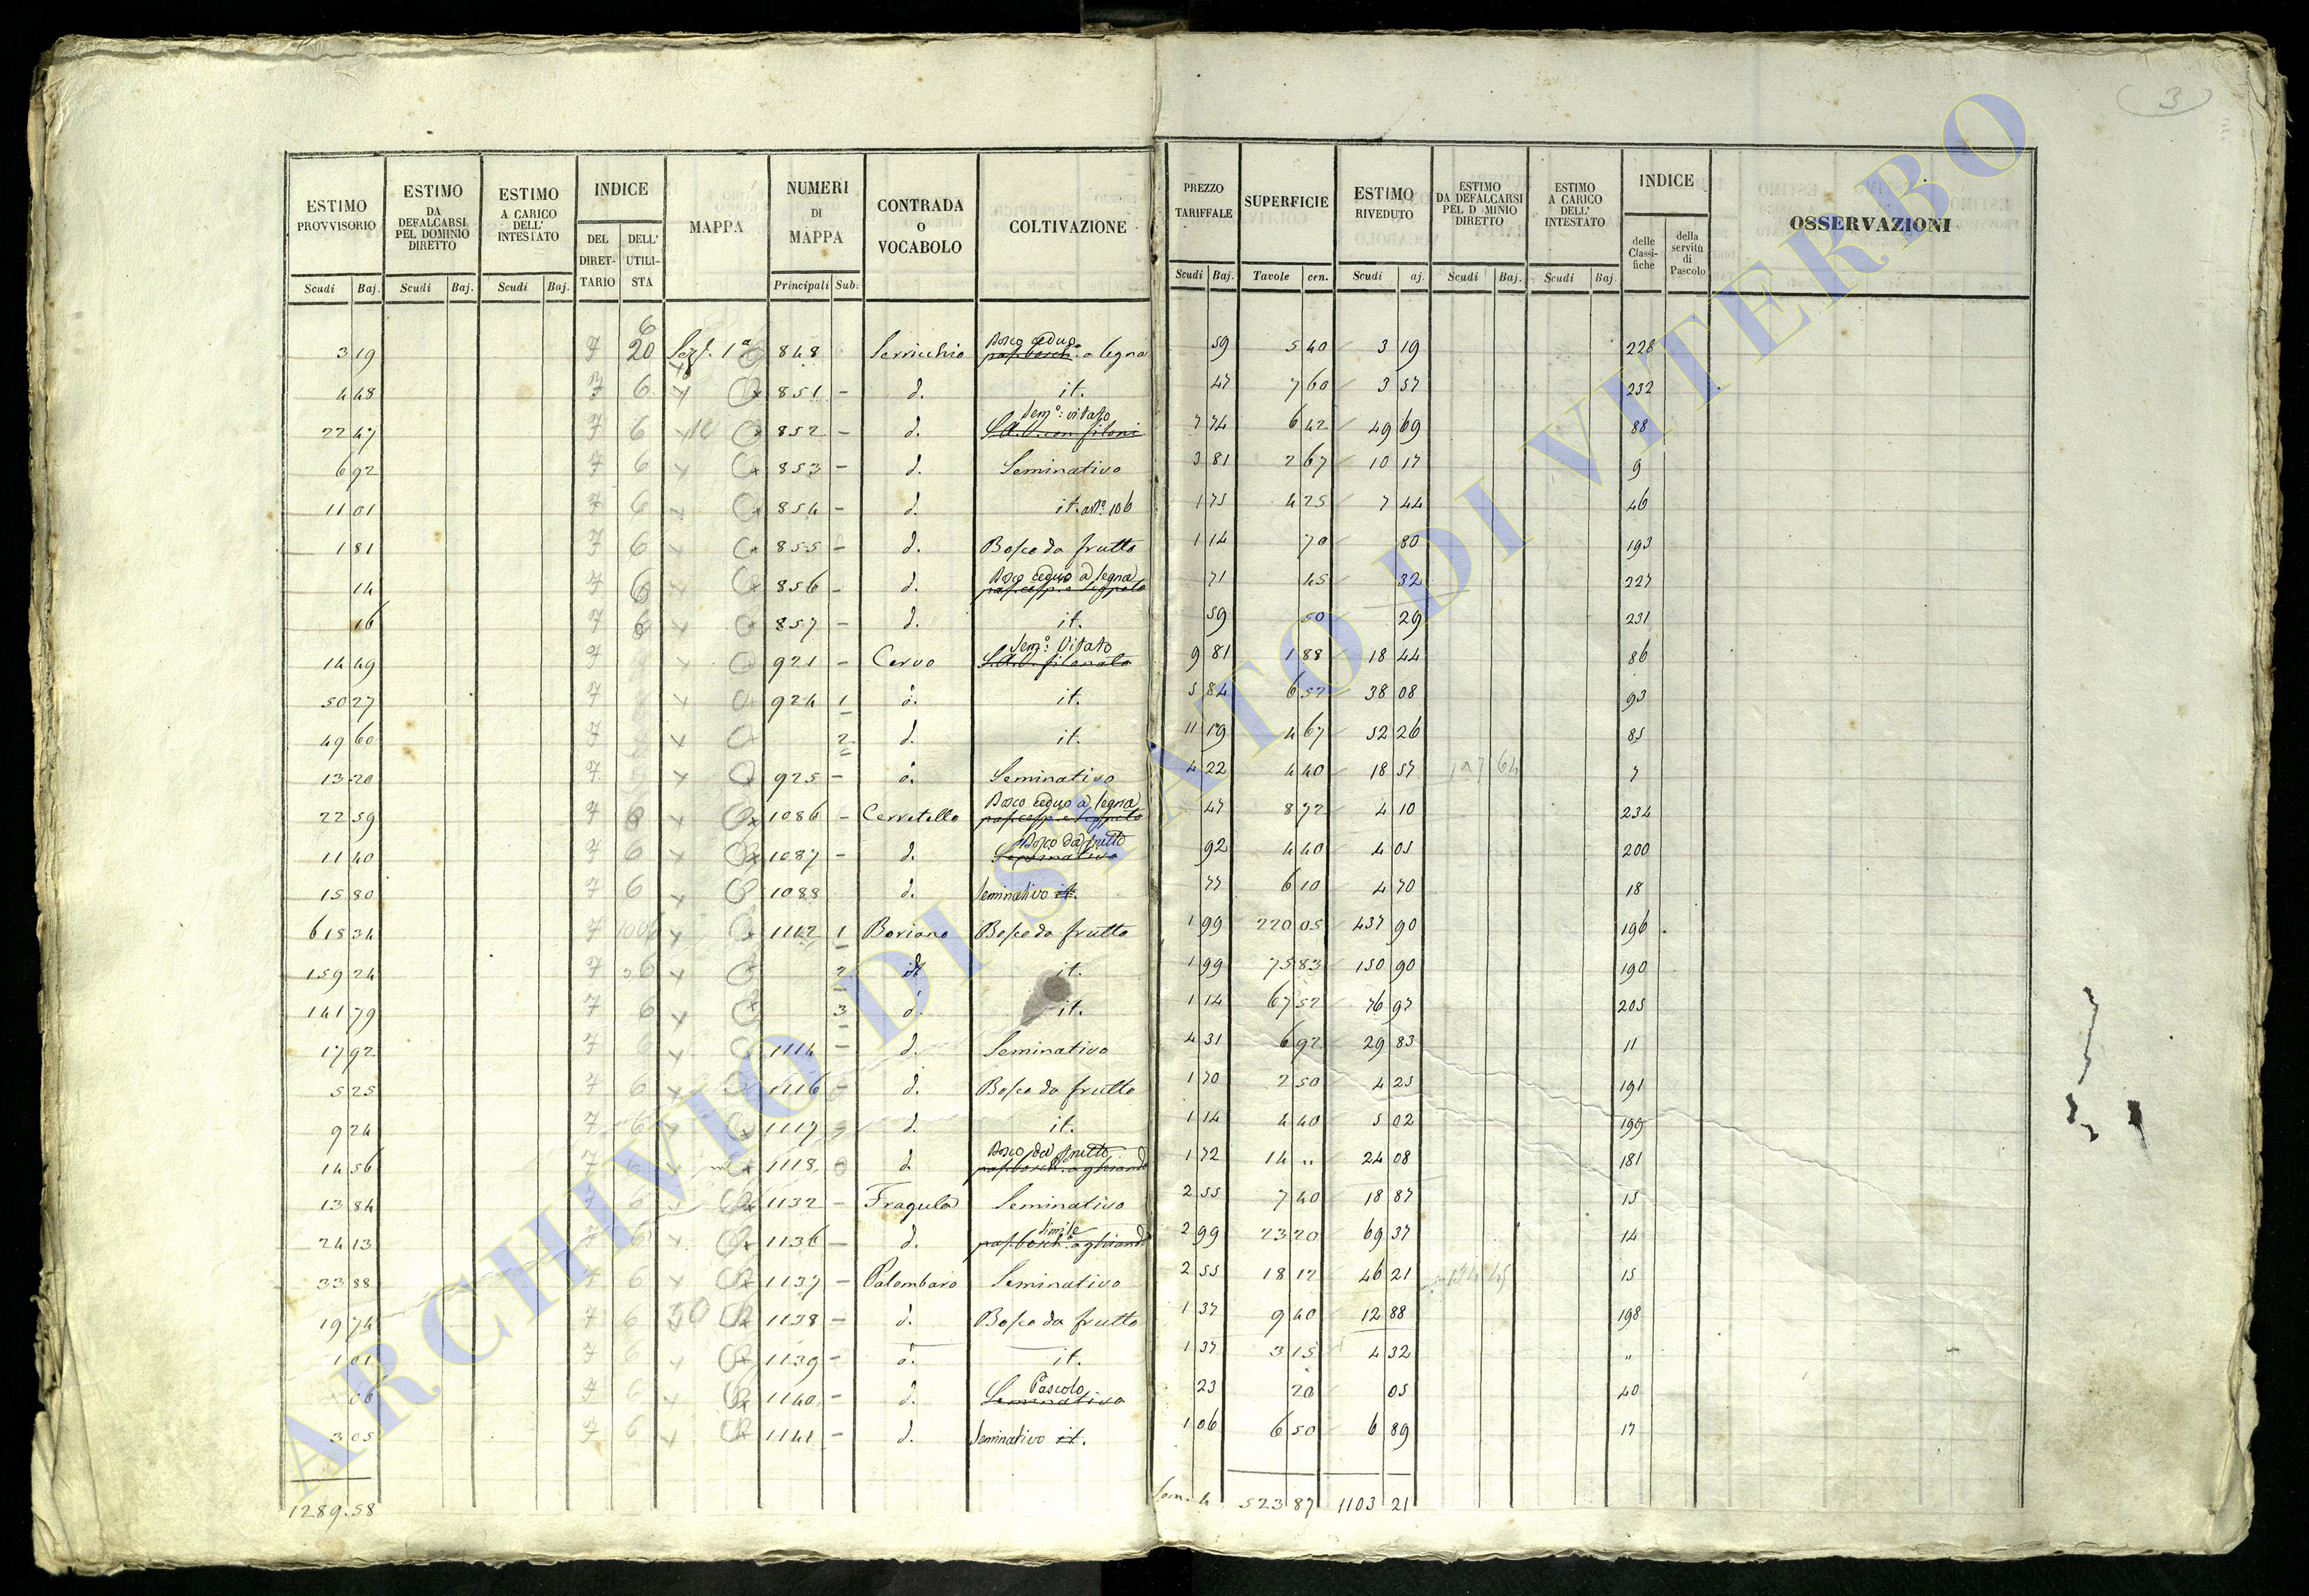 3
ESTIMO PROVVISORIO | ESTIMO DA DEFALCARSI PEL DOMINIO DIRETTO | ESTIMO A CARICO DELL' INTESTATO | INDICE | MAPPA | NUMERI DI MAPPA | CONTRADA O VOCABOLO | COLTIVAZIONE | PREZZO TARIFFALE | SUPERFICIE | ESTIMO RIVEDUTO | ESTIMO DA DEFALCARSI PEL D MINIO DIRETTO | ESTIMO A CARICO DELL' INTESTATO | INDICE | OSSERVAZIONI
DEL DIRET-TARIO | DELL' UTILI-STA | delle Classi-fiche | della servitù di Pascolo
Scudi | Baj. | Scudi | Baj. | Scudi | Baj. | Principali | Sub. | Scudi | Baj. | Tavole | cen. | Scudi | aj. | Scudi | Baj. | Scudi | Baj.
6
Bosco ceduo
3 19 | 7 | 20 | Sez. 1a | 848 | Serricchio | a legna | 59 | 5 40 | 3 19 | 228
4 48 | 7 | 6 | 851 - | d. | it. | 47 | 7 60 | 3 57 | 232
Semo: vitato
22 47 | 7 | 6 | 852 - | d. | S.A.V. con filoni | 7 74 | 6 42 | 49 69 | 88
6 92 | 7 | 6 | 853 - | d. | Seminativo | 3 81 | 2 67 | 10 17 | 9
11 01 | 7 | 6 | 854 - | d. | it. | 1 75 | 4 25 | 7 44 | 46
1 81 | 7 | 6 | 855 - | d. | Bosco da frutto | 1 14 | 70 | 80 | 193
Bosco ceduo a legna
14 | 7 | 6 | 856 - | d. | 71 | 45 | 32 | 227
16 | 7 | 6 | 857 - | d. | it. | 59 | 50 | 29 | 231
Semo: Vitato
14 49 | 7 | 921 - | Cervo | S.A.V. filonato | 9 81 | 1 88 | 18 44 | 86
50 27 | 7 | 924 1 | d. | it. | 5 84 | 6 52 | 38 08 | 93
49 60 | 7 | 2 | d. | it. | 11 19 | 4 67 | 52 26 | 85
13 20 | 7 | 925 - | d. | Seminativo | 4 22 | 4 40 | 18 57 | 7
Bosco ceduo a legna
22 59 | 7 | 6 | 1086 - | Cerretello | 47 | 8 72 | 4 10 | 234
Bosco da frutto
11 40 | 7 | 6 | 1087 - | d. | Seminativo | 92 | 4 40 | 4 05 | 200
15 80 | 7 | 6 | 1088 | d. | Seminativo it. | 77 | 6 10 | 4 70 | 18
618 34 | 7 | 1112 1 | Boriano | Bosco da frutto | 1 99 | 220 05 | 437 90 | 196
159 24 | 7 | 6 | 2 | d. | it. | 1 99 | 75 83 | 150 90 | 190
141 79 | 7 | 6 | 3 | d. | it. | 1 14 | 67 52 | 76 97 | 205
17 92 | 7 | 6 | 1114 - | d. | Seminativo | 4 31 | 6 92 | 29 83 | 11
5 25 | 7 | 6 | 1116 | d. | Bosco da frutto | 1 70 | 2 50 | 4 25 | 191
9 24 | 7 | 6 | 1117 | d. | it. | 1 14 | 4 40 | 5 02 | 199
Bosco da frutto
14 56 | 7 | 6 | 1118 | d. | past. bosch. a ghianda | 1 72 | 14 " | 24 08 | 181
13 84 | 7 | 6 | 1132 - | Fragula | Seminativo | 2 55 | 7 40 | 18 87 | 15
simile
24 13 | 7 | 6 | 1136 - | d. | past. bosch. a ghianda | 2 99 | 23 20 | 69 37 | 14
33 88 | 7 | 6 | 1137 - | Palombaro | Seminativo | 2 55 | 18 12 | 46 21 | 15
19 74 | 7 | 6 | 1138 - | d. | Bosco da frutto | 1 37 | 9 40 | 12 88 | 198
1 01 | 7 | 6 | 1139 - | d. | it. | 1 37 | 3 15 | 4 32 | "
Pascolo
06 | 7 | 6 | 1140 - | d. | Seminativo | 23 | 20 | 05 | 40
3 05 | 7 | 6 | 1141 - | d. | Seminativo it. | 1 06 | 6 50 | 6 89 | 17
1289.58 | 523 87 | 1103 21
ARCHIVIO DI STATO DI VITERBO